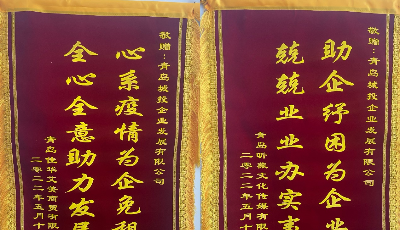 敬赠：青岛城投企业发展有限公司
心系疫情为企免租
全心全意助力发展
青岛佳华 商贸有限
二零二二年五月十
敬赠：青岛城投企业发展有限公司
助企纾困为企业
兢兢业业办实事
青岛昕 文化传媒有限
二零二二年五月十